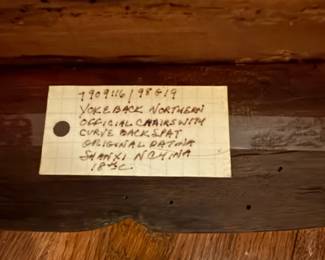 7909116/98G19
YOKEBACK NORTHERN
OFFICIAL CHAIRS WITH
CURVE BACK SPAT
ORIGINAL PATINA
SHANXI N CHINA
18th C.